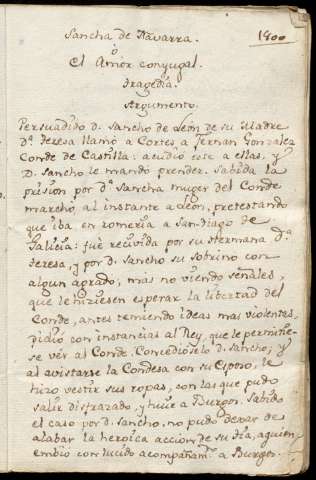 Sancha de Navarra.
1800
ò
El Amor conyugal.
tragedia.
Argumento.
Persuadido d. Sancho de León de su Madre
Dª. Teresa llamó a Cortes, a Fernan Gonzalez
Conde de Castilla: acudio este a ellas, y
D. Sancho le mandó prender. Sabida la
prision por dª Sancha muger del Conde
marchó al instante a Leon, pretestando
que iba en romeria a San-diago de
Galicia: fue recivida por su Hermana dª
Teresa, y por d. Sancho su sobrino con
algun agrado; mas no viendo señales,
que le hiziesen esperar la libertad del
Conde, antes temiendo ideas mas violentas,
pidio con instancias al Rey, que le permitie-
se ver al Conde. Concedioselo d. Sancho; y
al avistarse la Condesa con su Esposo, le
hizo vestir sus ropas, con las que pudo
salir disfrazado, y huir a Burgos. Sabido
el caso por d. Sancho, no pudo dexar de
alabar la heroica accion de su tia, a quien
embio con lucido acompañamto. a Burgos.